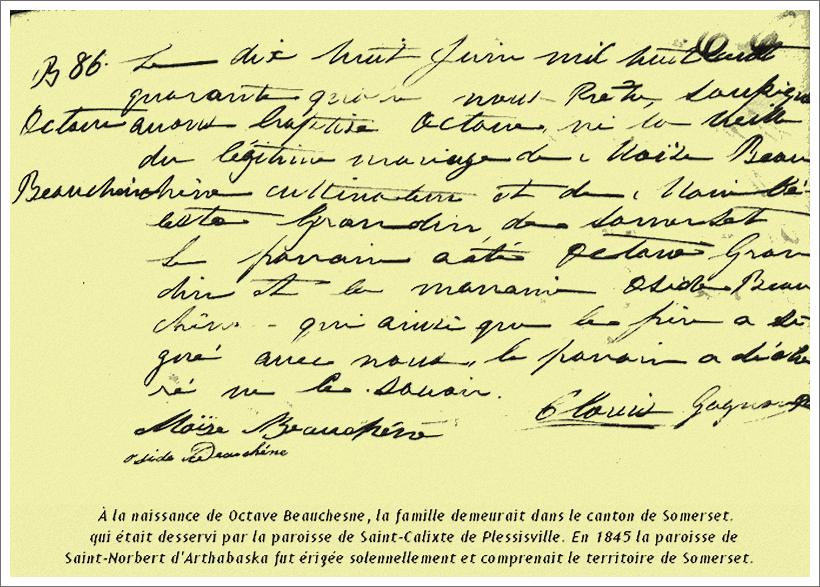 B 86. Le dix huit Juin mil huit cent
quarante nous Prêtre soussigné
Octave avons baptisé Octave, né la veille
du légitime mariage de Moïse Beau
Beauchêne chêne cultivateur et de Marie Cé-
leste Grandin de Somerset
Le parrain a été Octave Gran
din et la marraine Oside Beau
chêne - qui ainsi que le père a si-
gné avec nous, le parrain a décla
ré ne le savoir.
Moïse Beauchêne
oside Beauchêne
Clovis Gagnon Ptre
À la naissance de Octave Beauchesne, la famille demeurait dans le canton de Somerset.
qui était desservi par la paroisse de Saint-Calixte de Plessisville. En 1845 la paroisse de
Saint-Norbert d'Arthabaska fut érigée solennellement et comprenait le territoire de Somerset.